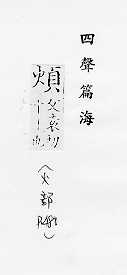 四聲篇海
煩
父袁切
(火部
P.481)